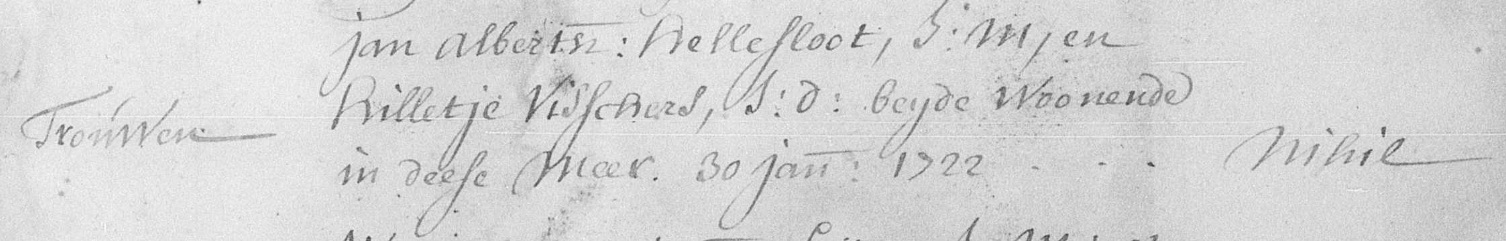 jan Albertsz: Kellesloot, J: M, en
Trouwen Hilletje Visschers, J: d: beyde Woonende
in deese Meer. 30 jan: 1722 . . . Nihil